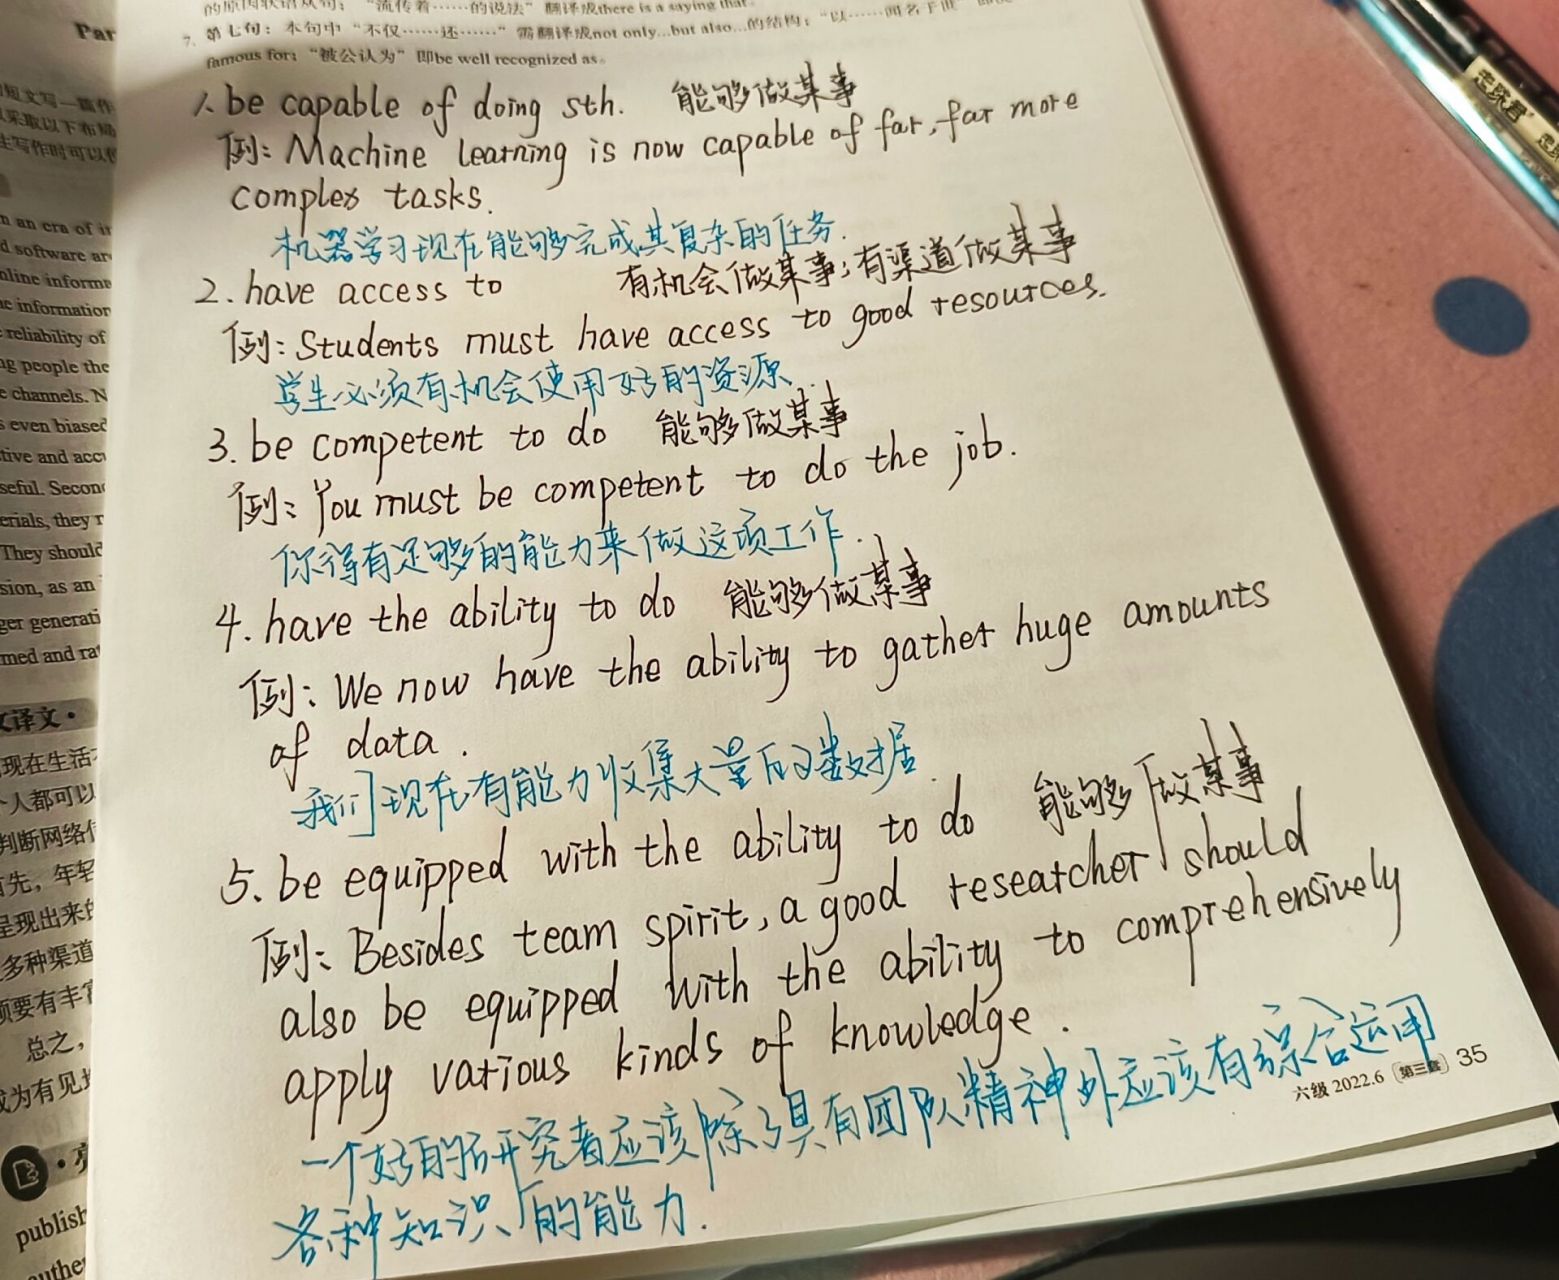 Par
的原因状语从句；“流传着……的说法”翻译成there is a saying that
7. 第七句：本句中“不仅……还……”需翻译成not only...but also...的结构；“以……闻名于世”
famous for；“被公认为”即be well recognized as。
1. be capable of doing sth. 能够做某事
例: Machine learning is now capable of far, far more
complex tasks.
机器学习现在能够完成其复杂的任务.
2. have access to 有机会做某事；有渠道做某事
例: Students must have access to good resources.
学生必须有机会使用好的资源.
3. be competent to do 能够做某事
例: You must be competent to do the job.
你得有足够的能力来做这项工作.
4. have the ability to do 能够做某事
例: We now have the ability to gather huge amounts
of data.
我们现在有能力收集大量的数据.
5. be equipped with the ability to do 能够做某事
例: Besides team spirit, a good researcher should
also be equipped with the ability to comprehensively
apply various kinds of knowledge.
一个好的研究者应该除了具有团队精神外应该有综合运用
各种知识的能力.
六级 2022.6 第三套 35
短文写一篇作
采取以下布局
写作时可以
n an era of
d software
nline
information
reliability of
people the
channels. N
even biased
tive and
seful. Secon
erials, they
They should
sion, as an
ger generati
med and
译文·
现在生活
人都可以
判断网络
首先，年轻
呈现出来的
多种渠道
须要有丰富
总之，
成为有见
publish